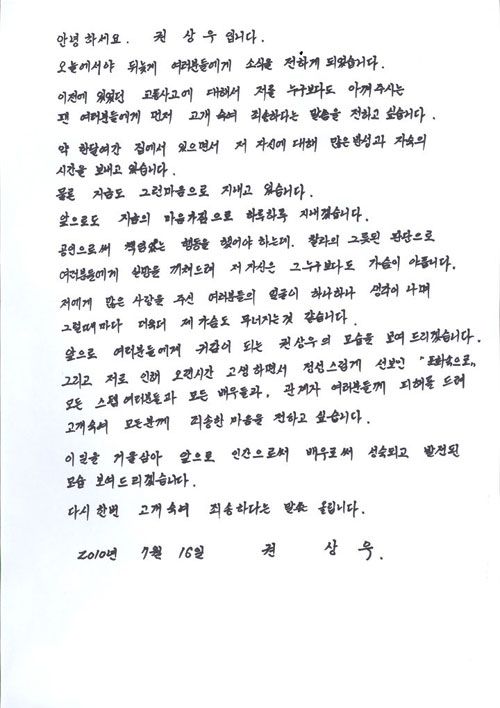 안녕하세요. 권 상 우 입니다.
오늘에서야 뒤늦게 여러분들에게 소식을 전하게 되었습니다.
이전에 있었던 교통사고에 대해서 저를 누구보다도 아껴주시는
팬 여러분들에게 먼저 고개 숙여 죄송하다는 말씀을 전하고 싶습니다.
약 한달여간 집에서 있으면서 저 자신에 대해 많은 반성과 자숙의
시간을 보내고 있습니다.
물론 지금도 그런마음으로 지내고 있습니다.
앞으로도 지금의 마음가짐으로 하루하루 지내겠습니다.
공인으로써 책임있는 행동을 했어야 하는데. 찰라의 그릇된 판단으로
여러분들에게 실망을 끼쳐드려 저 자신은 그 누구보다도 가슴이 아픕니다.
저에게 많은 사랑을 주신 여러분들의 얼굴이 하나하나 생각이 나며
그럴때마다 더욱더 제 가슴도 무너지는것 같습니다.
앞으로 여러분들에게 귀감이 되는 권상우의 모습을 보여 드리겠습니다.
그리고 저로 인해 오랜시간 고생하면서 정성스럽게 선보인 "포화속으로"
모든 스탭 여러분들과 모든 배우들과, 관계자 여러분들께 피해를 드려
고개숙여 모든분께 죄송한 마음을 전하고 싶습니다.
이 일을 거울삼아 앞으로 인간으로써 배우로써 성숙되고 발전된
모습 보여드리겠습니다.
다시 한번 고개 숙여 죄송하다는 말씀 올립니다.
2010년 7월 16일 권 상 우.